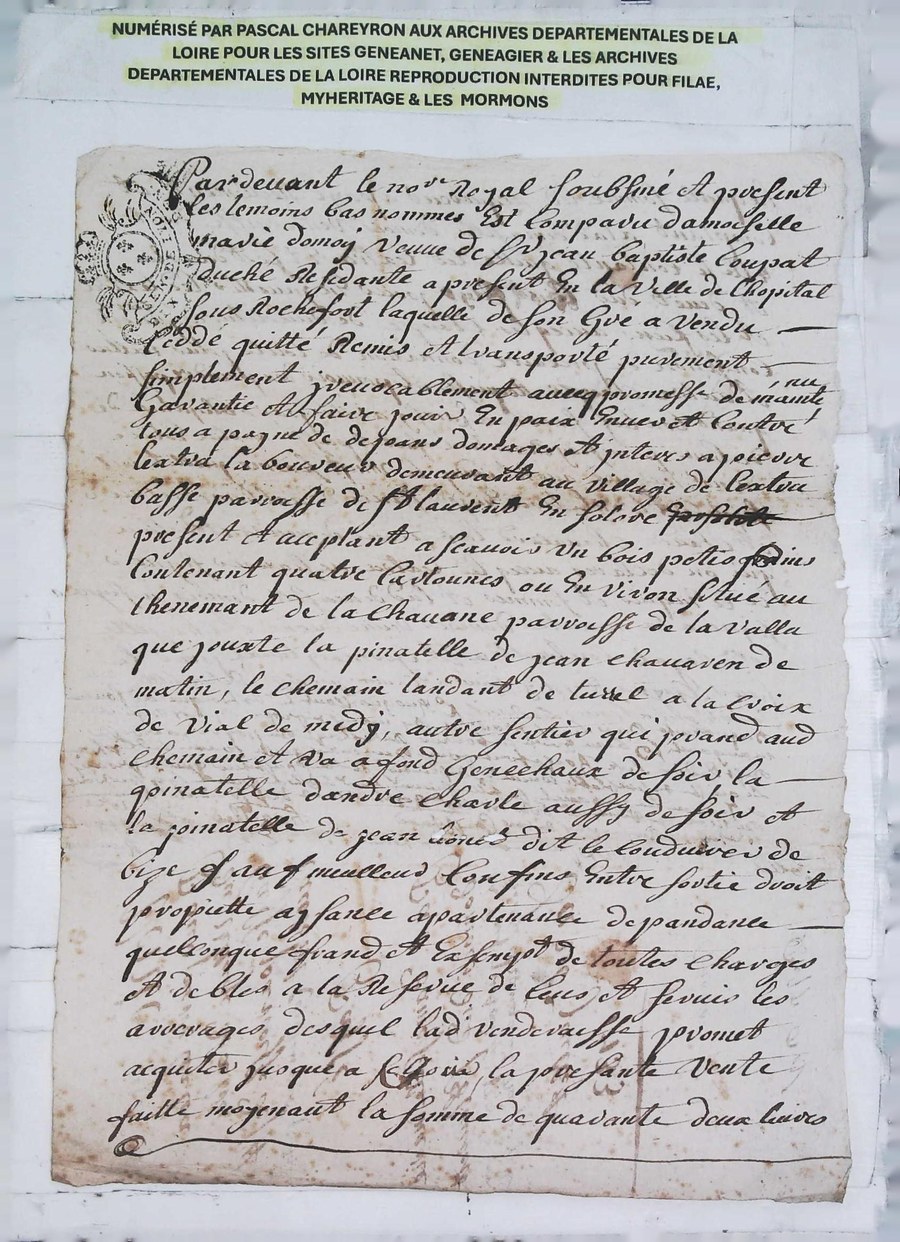 NUMÉRISÉ PAR PASCAL CHAREYRON AUX ARCHIVES DEPARTEMENTALES DE LA
LOIRE POUR LES SITES GENEANET, GENEAGIER & LES ARCHIVES
DEPARTEMENTALES DE LA LOIRE REPRODUCTION INTERDITES POUR FILAE,
MYHERITAGE & LES MORMONS
Pardevant le nore Royal soubsiné et present
les temoins bas nommes est Comparu damoiselle
marie domoy veuve de sr jean baptiste Coupat
duché Residante a present En la ville de Lhopital
sous Rochefort laquelle de son Gre a vendu
Ceddé quitté Remis et transporté purement
simplement jrevocablement avecq promesse de mainte nu
Garantie et faire jouir En paix Envers et Contre
tous a payne de depans domages et interes a pierre
lextra laboureur demeurant au village de lextra
basse parroisse de st laurent En solore
present et acceptant a scavoir un bois petis
Contenant quatre Cartounes ou En viron situé au
thenemant de la Chavane parroisse de la valla
que jouxte la pinatelle de jean Chavaren de
matin, le chemain tandant de a la Croix
de vial de midy, autre sentier qui prand aud
chemain et va a fond Genechaux de soir la
pinatelle dandre Charle aussy de soir et
la pinatelle de jean dit le Coudurier de
bize sauf meulleurs Confins Entre sortie droit
propiette aysance apartenance depandance
quelconque frand et Exsempt de toutes charges
et debtes a la Reserve de Cens et servis les
arverages desquel lad venderaisse promet
aquiter jusque a Ce jour, la presante vente
faitte moyenant la somme de quarante deux livres